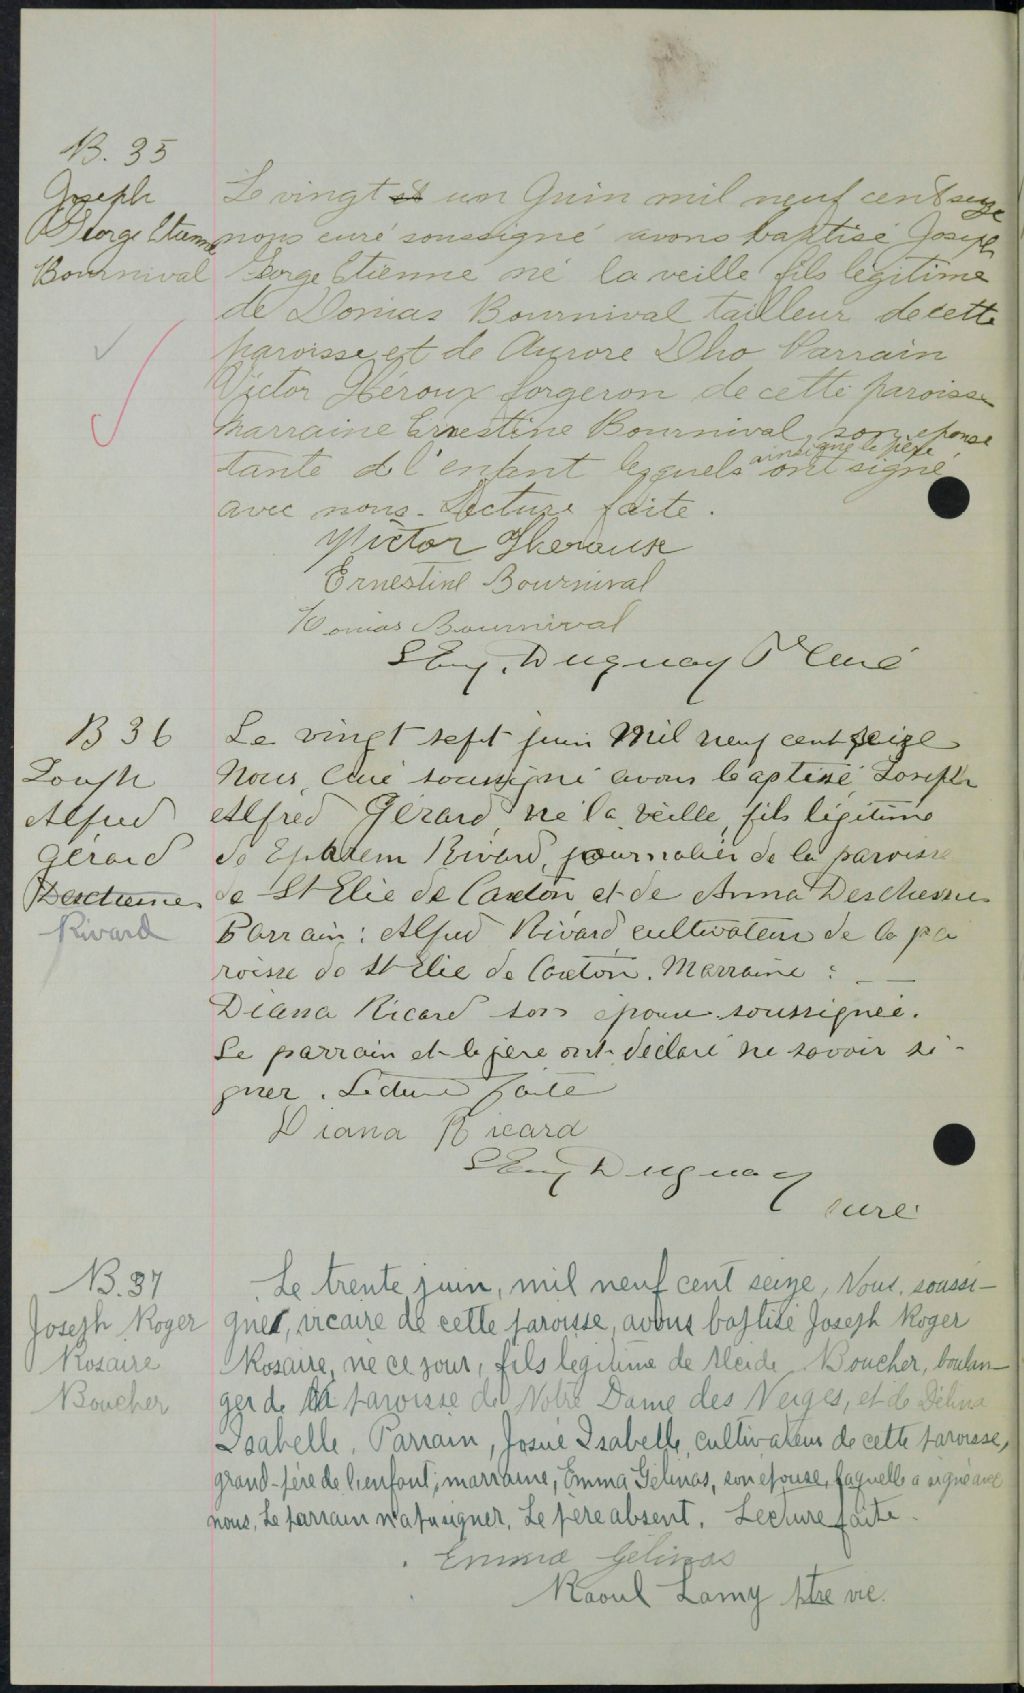 B. 35
Joseph
George Etienne
Bournival
Le vingt et un Juin mil neuf cent seize
nous curé soussigné avons baptisé Joseph
George Etienne né la veille fils légitime
de Donias Bournival tailleur de cette
paroisse et de Aurore Dho Parrain
Victor Héroux forgeron de cette paroisse
Marraine Ernestine Bournival, son epouse
tante de l'enfant lesquels ainsi que le père ont signé
avec nous. Lecture faite.
Victor Heroux
Ernestine Bournival
Donias Bournival
Duguay Ptre Curé
B 36
Joseph
Alfred
Gérard
Deschesnes
Rivard
Le vingt sept juin mil neuf cent seize
Nous, Curé soussigné avons baptisé Joseph
Alfred Gérard, né la veille, fils légitime
de Ephrem Rivard, journalier de la paroisse
de St Elie de Caxton et de Anna Deschesnes
Parrain : Alfred Rivard cultivateur de la pa
roisse de St Elie de Caxton. Marraine :
Diana Ricard son épouse soussignée.
Le parrain et le père ont déclaré ne savoir si-
gner. Lecture faite
Diana Ricard
Duguay
curé
B. 37
Joseph Roger
Rosaire
Boucher
Le trente juin, mil neuf cent seize, Nous, soussi-
gné, vicaire de cette paroisse, avons baptisé Joseph Roger
Rosaire, né ce jour, fils légitime de Alcide Boucher, boulan-
ger de la paroisse de Notre Dame des Neiges, et de Délina
Isabelle. Parrain, Josué Isabelle, cultivateur de cette paroisse,
grand-père de l'enfant; marraine, Emma Gélinas, son épouse, laquelle a signé avec
nous. Le parrain n'a pu signer. Le père absent. Lecture faite.
Emma Gélinas
Raoul Lamy ptre vic.